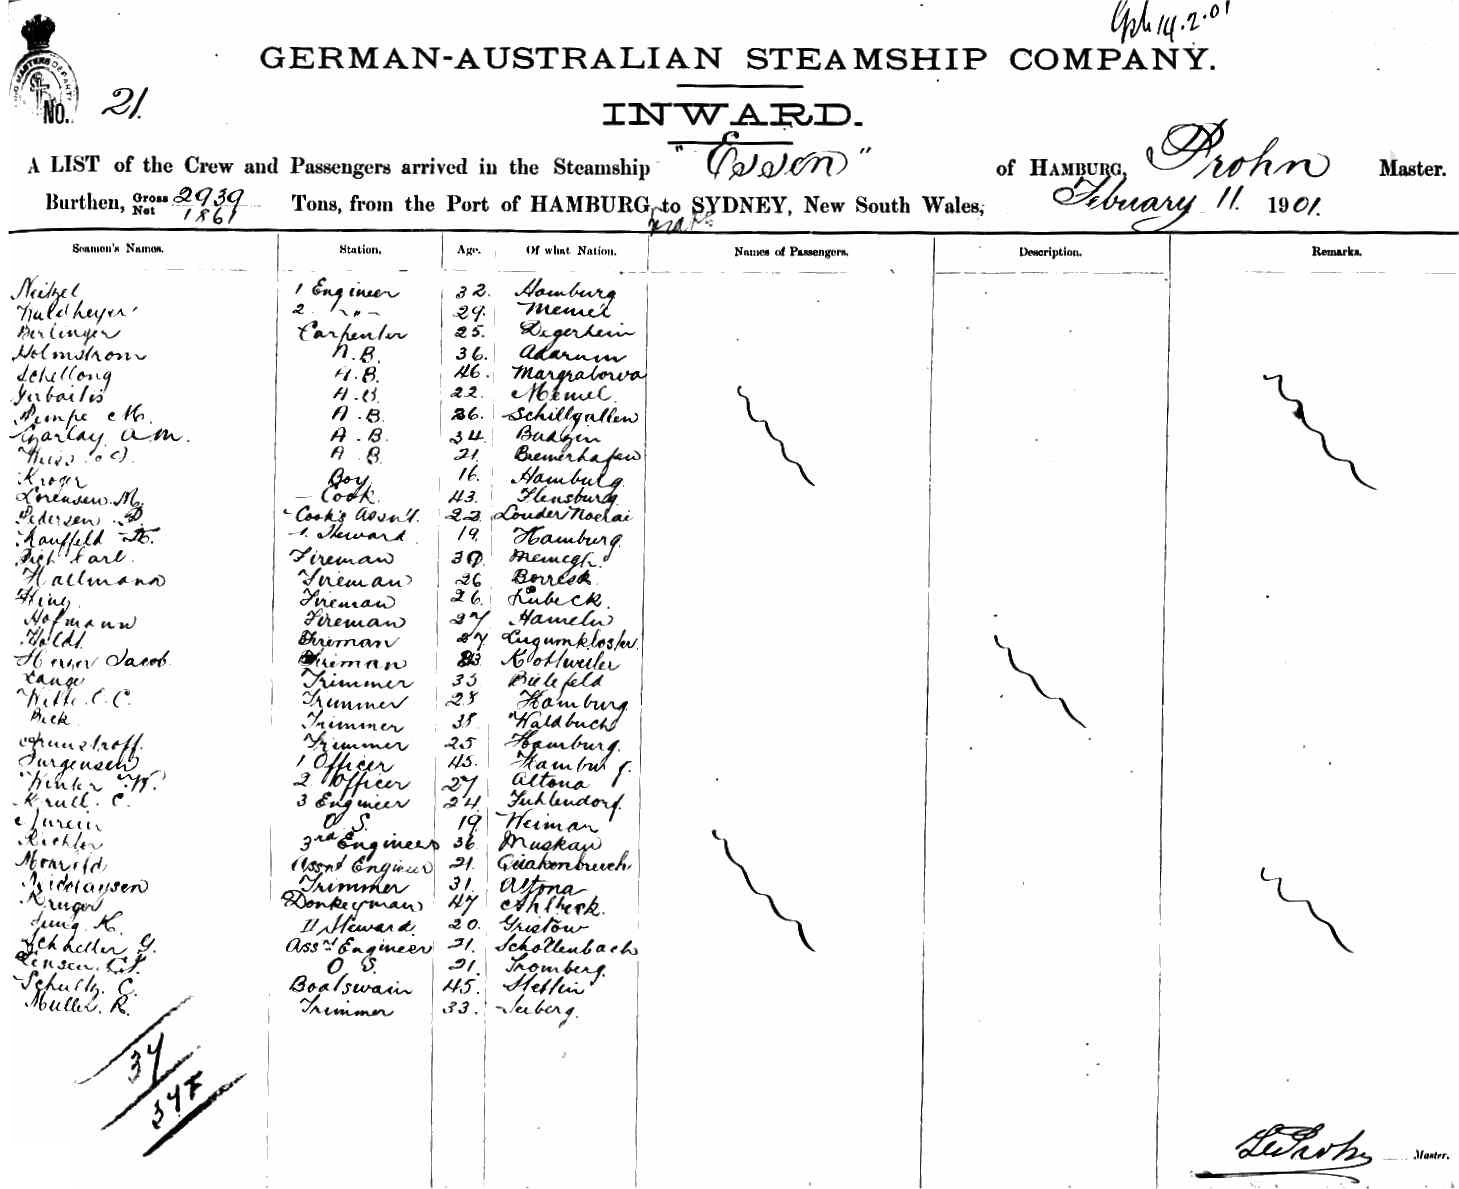 14.2.01
GERMAN-AUSTRALIAN STEAMSHIP COMPANY.
No. 21.
INWARD.
A LIST of the Crew and Passengers arrived in the Steamship "Essen" of HAMBURG, Prohn Master.
Burthen, Gross 2939 Net 1861 Tons, from the Port of HAMBURG, to SYDNEY, New South Wales, February 11. 1901.
Seamen's Names. Station. Age. Of what Nation. Names of Passengers. Description. Remarks.
Neitzel 1 Engineer 32. Hamburg
2 " 29. Memel
Berlinger Carpenter 25. Degerhein
Holmstrom A.B. 36. Adarum
Schellong A.B. 46. Margrabowa
A.B. 22. Memel
Pempe M. A.B. 26. Schillgallen
Czarlay A.M. A.B. 34 Budzin
Weiss A B. 21. Bremerhafen
Kroger Boy 16. Hamburg
Lorensen. M. Cook 43. Flensburg
Pedersen. P. Cook's Assn't. 22.
Kauffeld 1. Steward 19. Hamburg.
Carl Fireman
Hallmann Fireman 26
Fireman 26. Lubeck.
Hofmann Fireman 27 Hameln
Holdt Fireman 27 Lugumkloster
Jacob Fireman Kottweiler
Lange Trimmer 35 Bielefeld
Witt. C.C. Trimmer 28 Hamburg
Bick Trimmer 38 Waldbuch
Trimmer 25 Hamburg.
Jurgensen 1 Officer 45. Hamburg.
Winter W. 2 Officer 27 Altona
Krull. C. 3 Engineer 24. Fuhlendorf.
O S. 19 Weimar
Richter 3rd Engineer 36 Muskau
Assnt Engineer 21. Quakenbrueck
Nicolaysen Trimmer 31. Altona
Kruger Donkeyman 47 Ahlbeck.
Jung K. 11 Steward. 20. Gristow
Scheller G. Asst Engineer 21. Schottenbach
Jensen. O S. 21. Tromberg.
Schultz. C. Boatswain 45. Stettin
Muller. R. Trimmer 33. Seeberg.
37
37
Master.